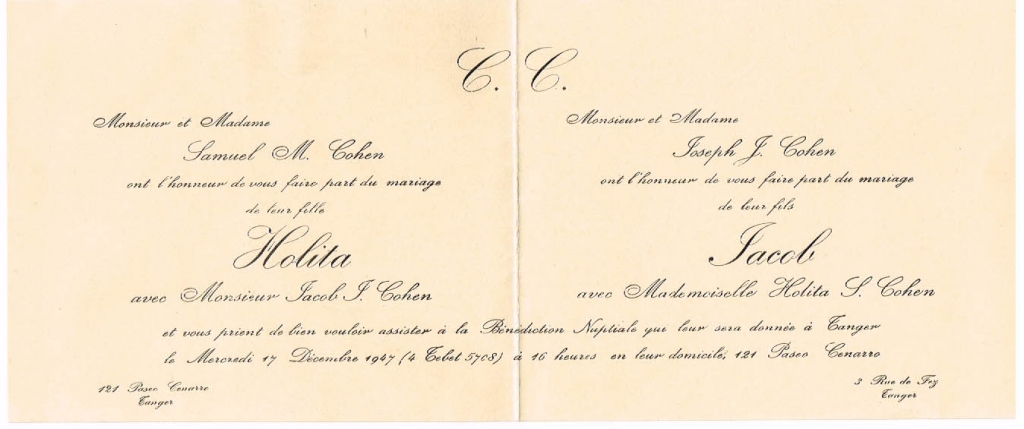 C. C.
Monsieur et Madame
Samuel M. Cohen
ont l'honneur de vous faire part du mariage
de leur fille
Holita
avec Monsieur Jacob J. Cohen
Monsieur et Madame
Joseph J. Cohen
ont l'honneur de vous faire part du mariage
de leur fils
Jacob
avec Mademoiselle Holita S. Cohen
et vous prient de bien vouloir assister à la Bénédiction Nuptiale qui leur sera donnée à Tanger
le Mercredi 17 Décembre 1947 (4 Tebet 5708) à 16 heures en leur domicile, 121 Paseo Cenarro
121 Paseo Cenarro
Tanger
3 Rue de Fez
Tanger